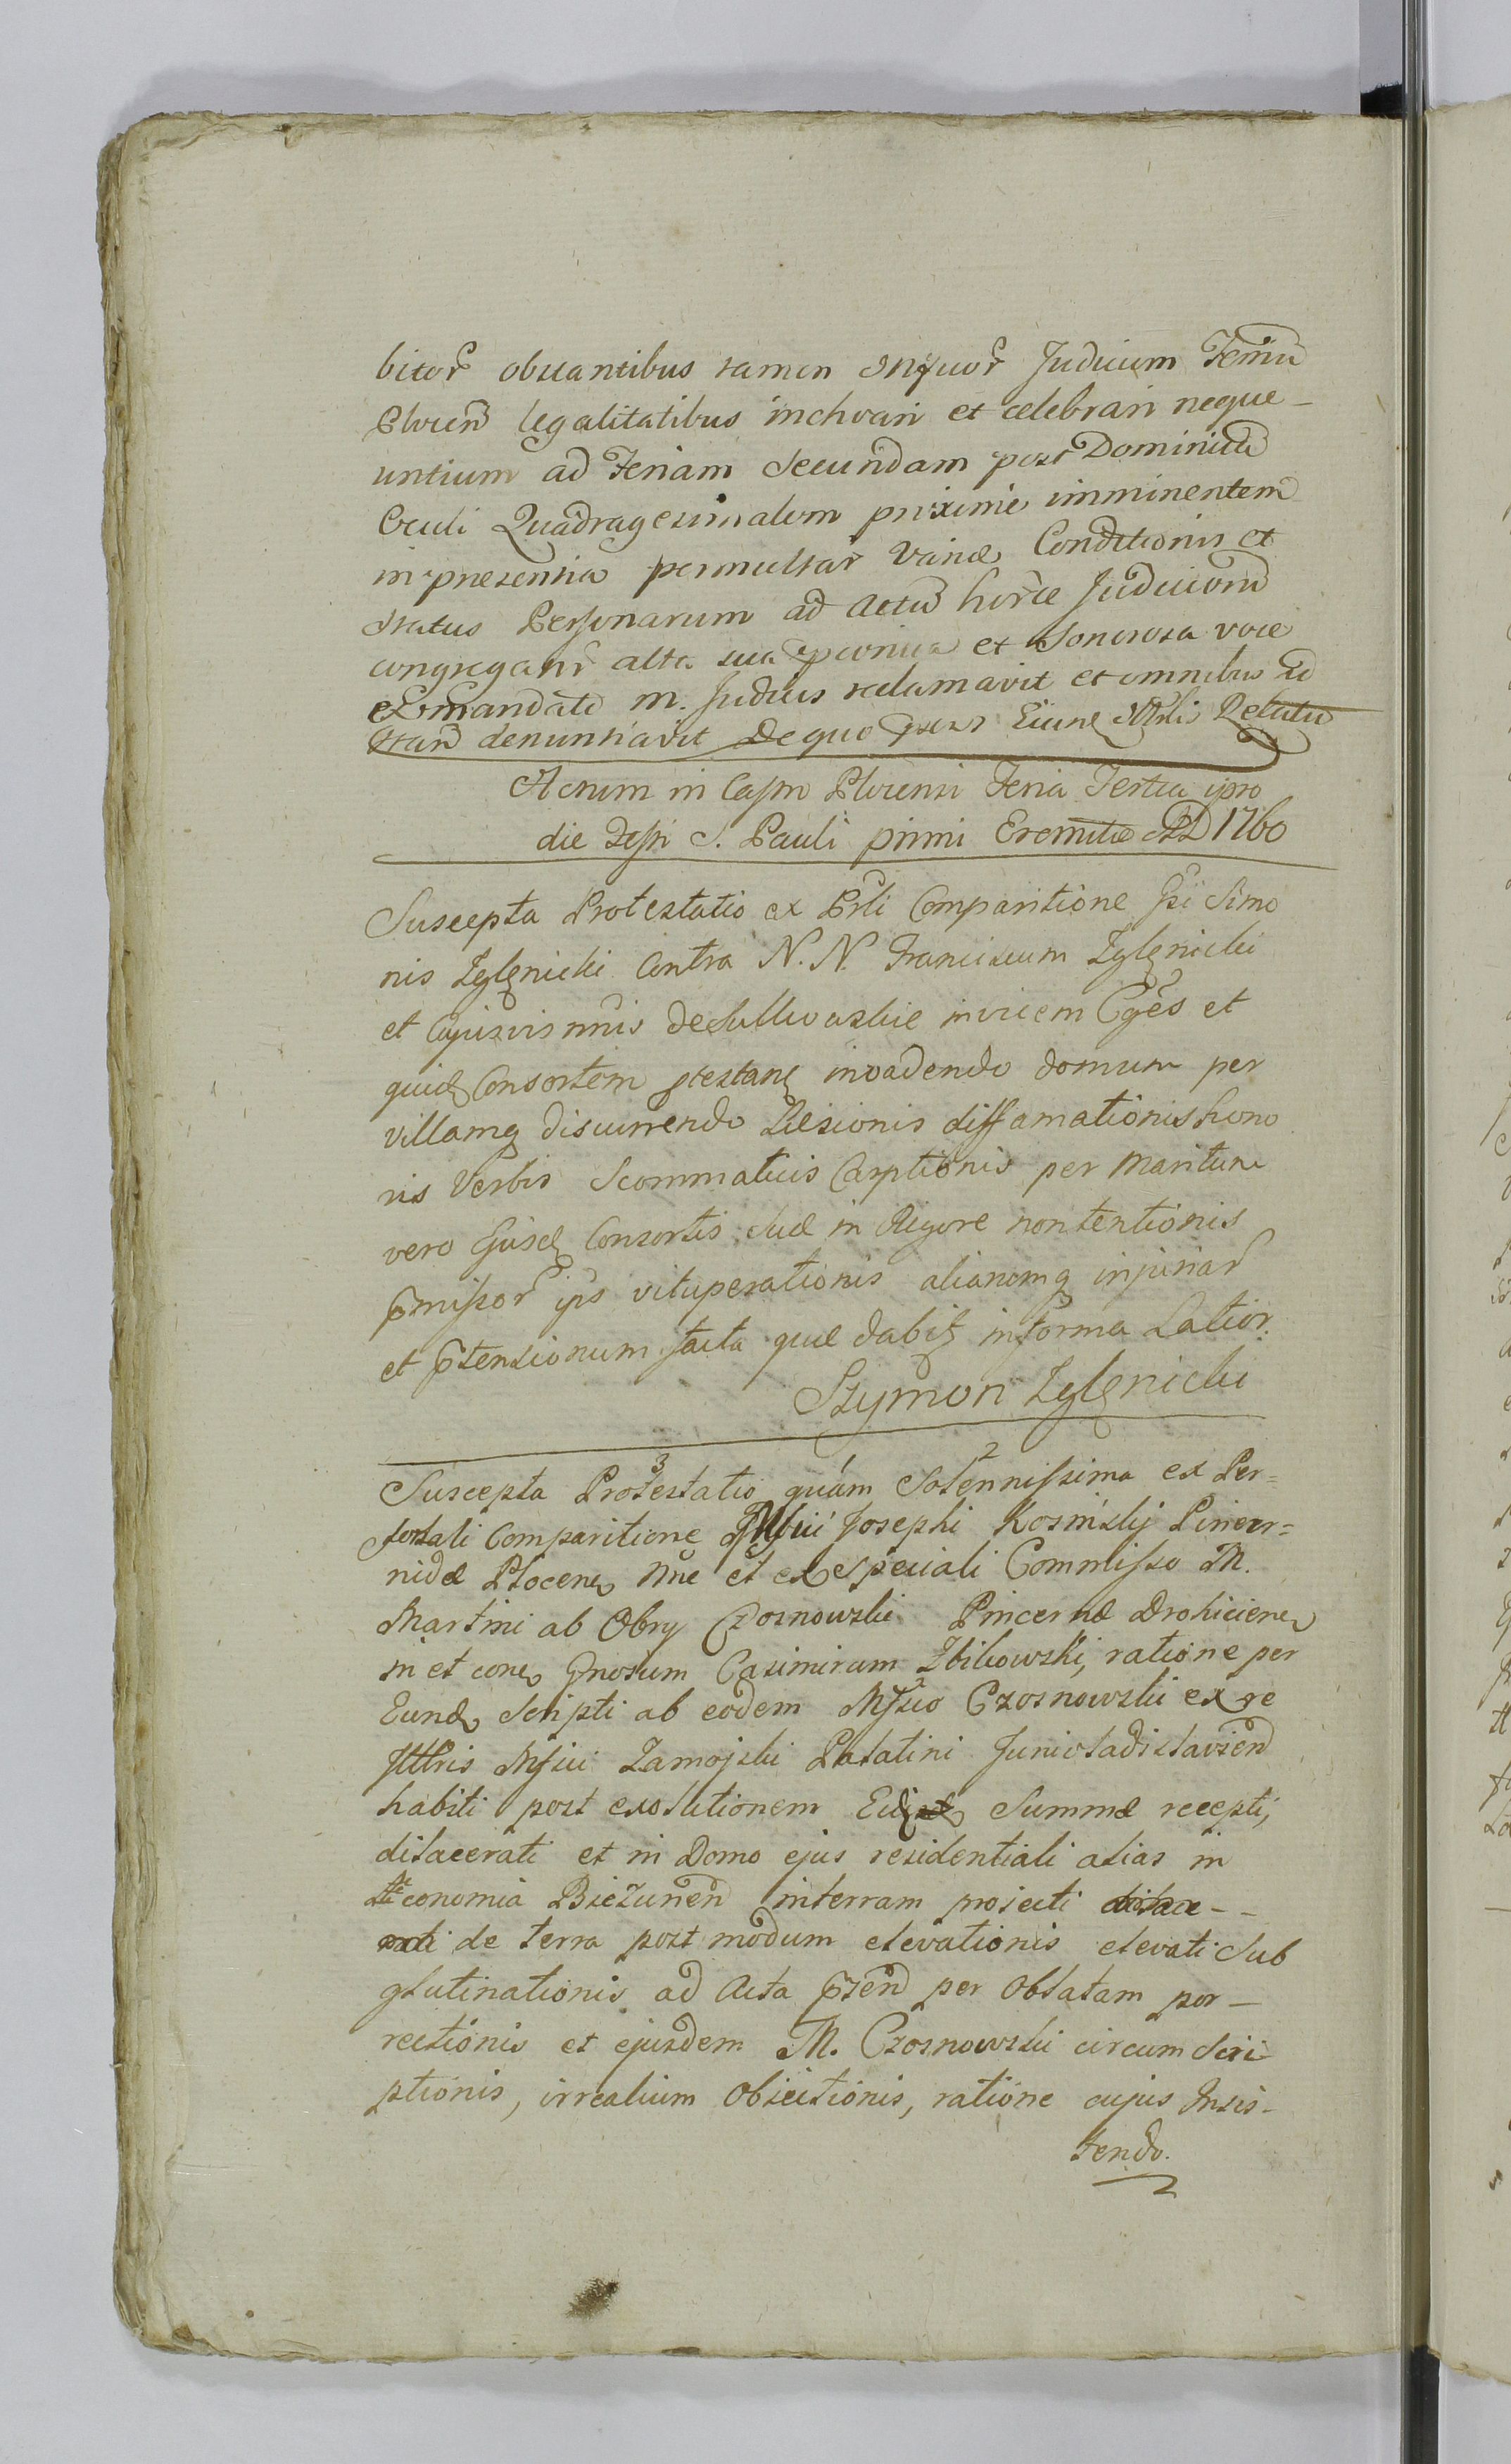 bitor obstantibus tamen Judicium Terriu
Plocen legalitatibus inchoari et celebrari neque-
untium ad Feriam Secundam post Dominica
Oculi Quadragesimalem proxime imminentem
in presentia permultar Variae Conditionis et
Status Personarum ad Actu horce Judicioru
congregatar alta sua et Sonorosa voce
ex mandato M. Judicis reclamavit et omnibus ad
denuntiavit De quo Relatio
Actum in Castro Plocensi Feria Tertia ipso
die Festi S. Pauli primi Eremitae AD 1760
Suscepta Protestatio ex Prli Comparitione Gsi Simo
nis Zglenicki Contra N. N. Franciscum Zglenicki
et Cajusvis nnis de Sulkowskie invicem Cges et
quidq Consortem pstanq invadendo domum per
villamq discurrendo Laesionis diffamationis hono
ris Verbis Scommaticis Carptionis per Maritum
vero Ejusdq Consortis Suae in Rigore non tentionis
pmissor ips vituperationis aliaromq injuriar
et ptensionum facta quae dabitq in forma Latior.
Szymon Zglenicki
Suscepta Protestatio quam Solennissima ex Per=
sonali Comparitione Msci Josephi Kosmsky Pincer=
nidae Plocenq nne et ex Speciali Commisso M.
Martini ab Obry Czosnowski Pincernae Drohicienq
in et conq Gnosum Casimirum Zbikowski, ratione per
Eundq Scripti ab eodem Msco Czosnowski ex re
Illris Msci Zamojski Palatini Juniwladislavien
habiti post exolutionem Summae recepti,
dilacerati et in Domo ejus residentiali alias in
Aeconomia Biezunen in terram projecti
de terra post modum elevationis elevati Sub
glutinationis ad Acta psen per Oblatam por-
rectionis et ejusdem M. Czosnowski circum Scri
ptionis, irrealium Objectionis, ratione cujus Insis-
tendo.